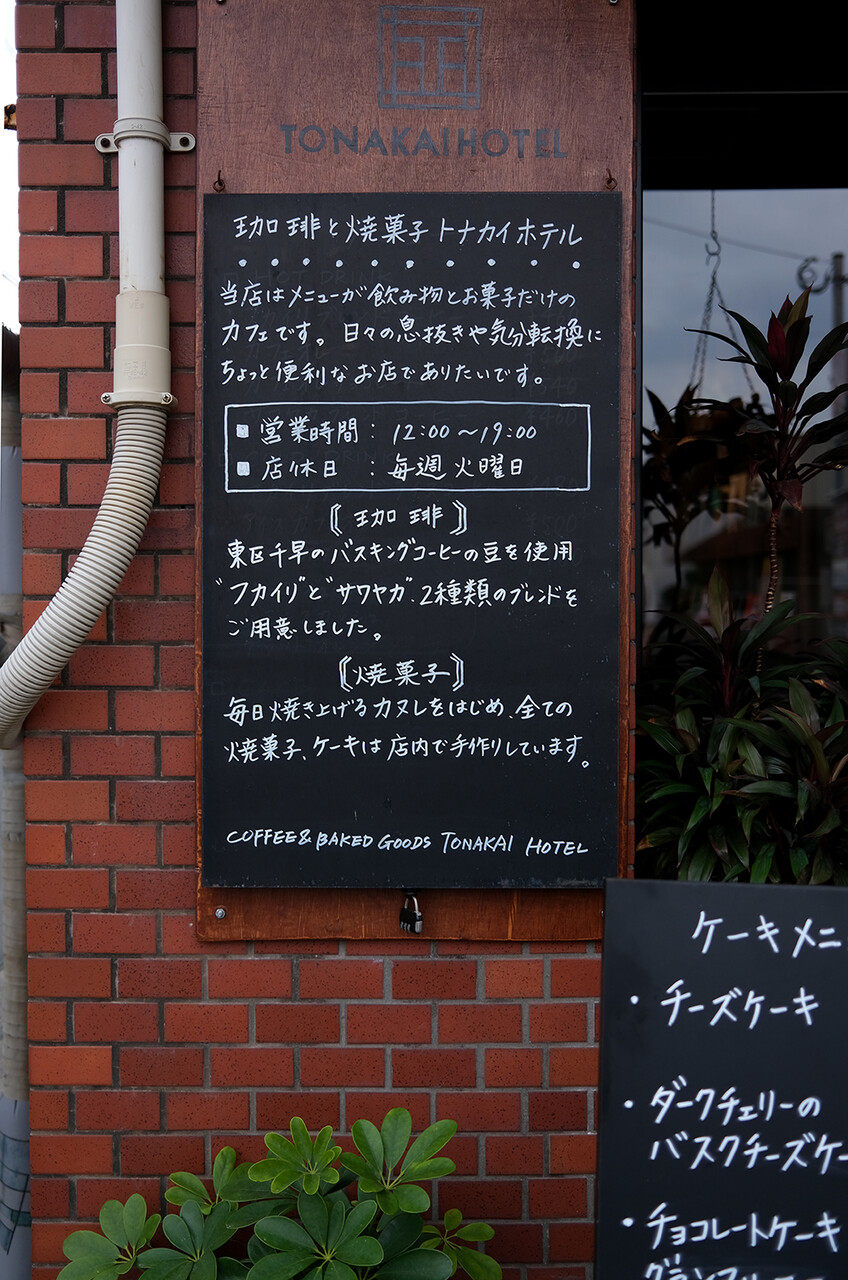 TONAKAI HOTEL
珈琲と焼菓子トナカイホテル
当店はメニューが飲み物とお菓子だけの
カフェです。日々の息抜きや気分転換に
ちょっと便利なお店でありたいです。
■営業時間：12:00～19:00
■店休日：毎週火曜日
〘珈琲〙
東区千早のバスキングコーヒーの豆を使用
“フカイリ”と“サワヤカ”、2種類のブレンドを
ご用意しました。
〘焼菓子〙
毎日焼き上げるカヌレをはじめ、全ての
焼菓子、ケーキは店内で手作りしています。
COFFEE & BAKED GOODS TONAKAI HOTEL
ケーキメニ
・チーズケーキ
・ダークチェリーの
バスクチーズケー
・チョコレートケーキ